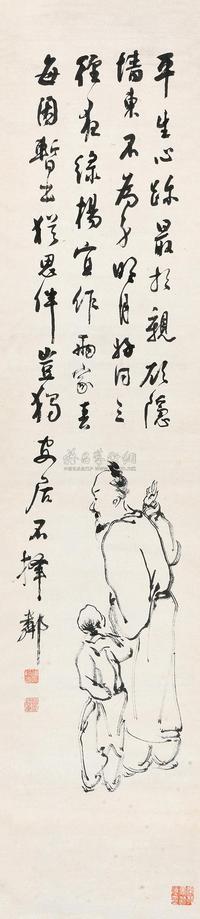 平生心跡最相親欲隱
墻東不為身明月好同三
徑夜綠楊宜作兩家春
每因暫出猶思伴豈獨
安居不擇鄰